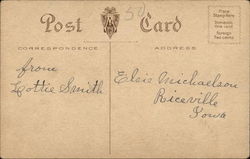 Post Card
Place
Stamp Here
Domestic
One cent
Foreign
Two cents
CORRESPONDENCE
ADDRESS
from
Lottie Smith
Elsie Michaelson
Riceville
Iowa